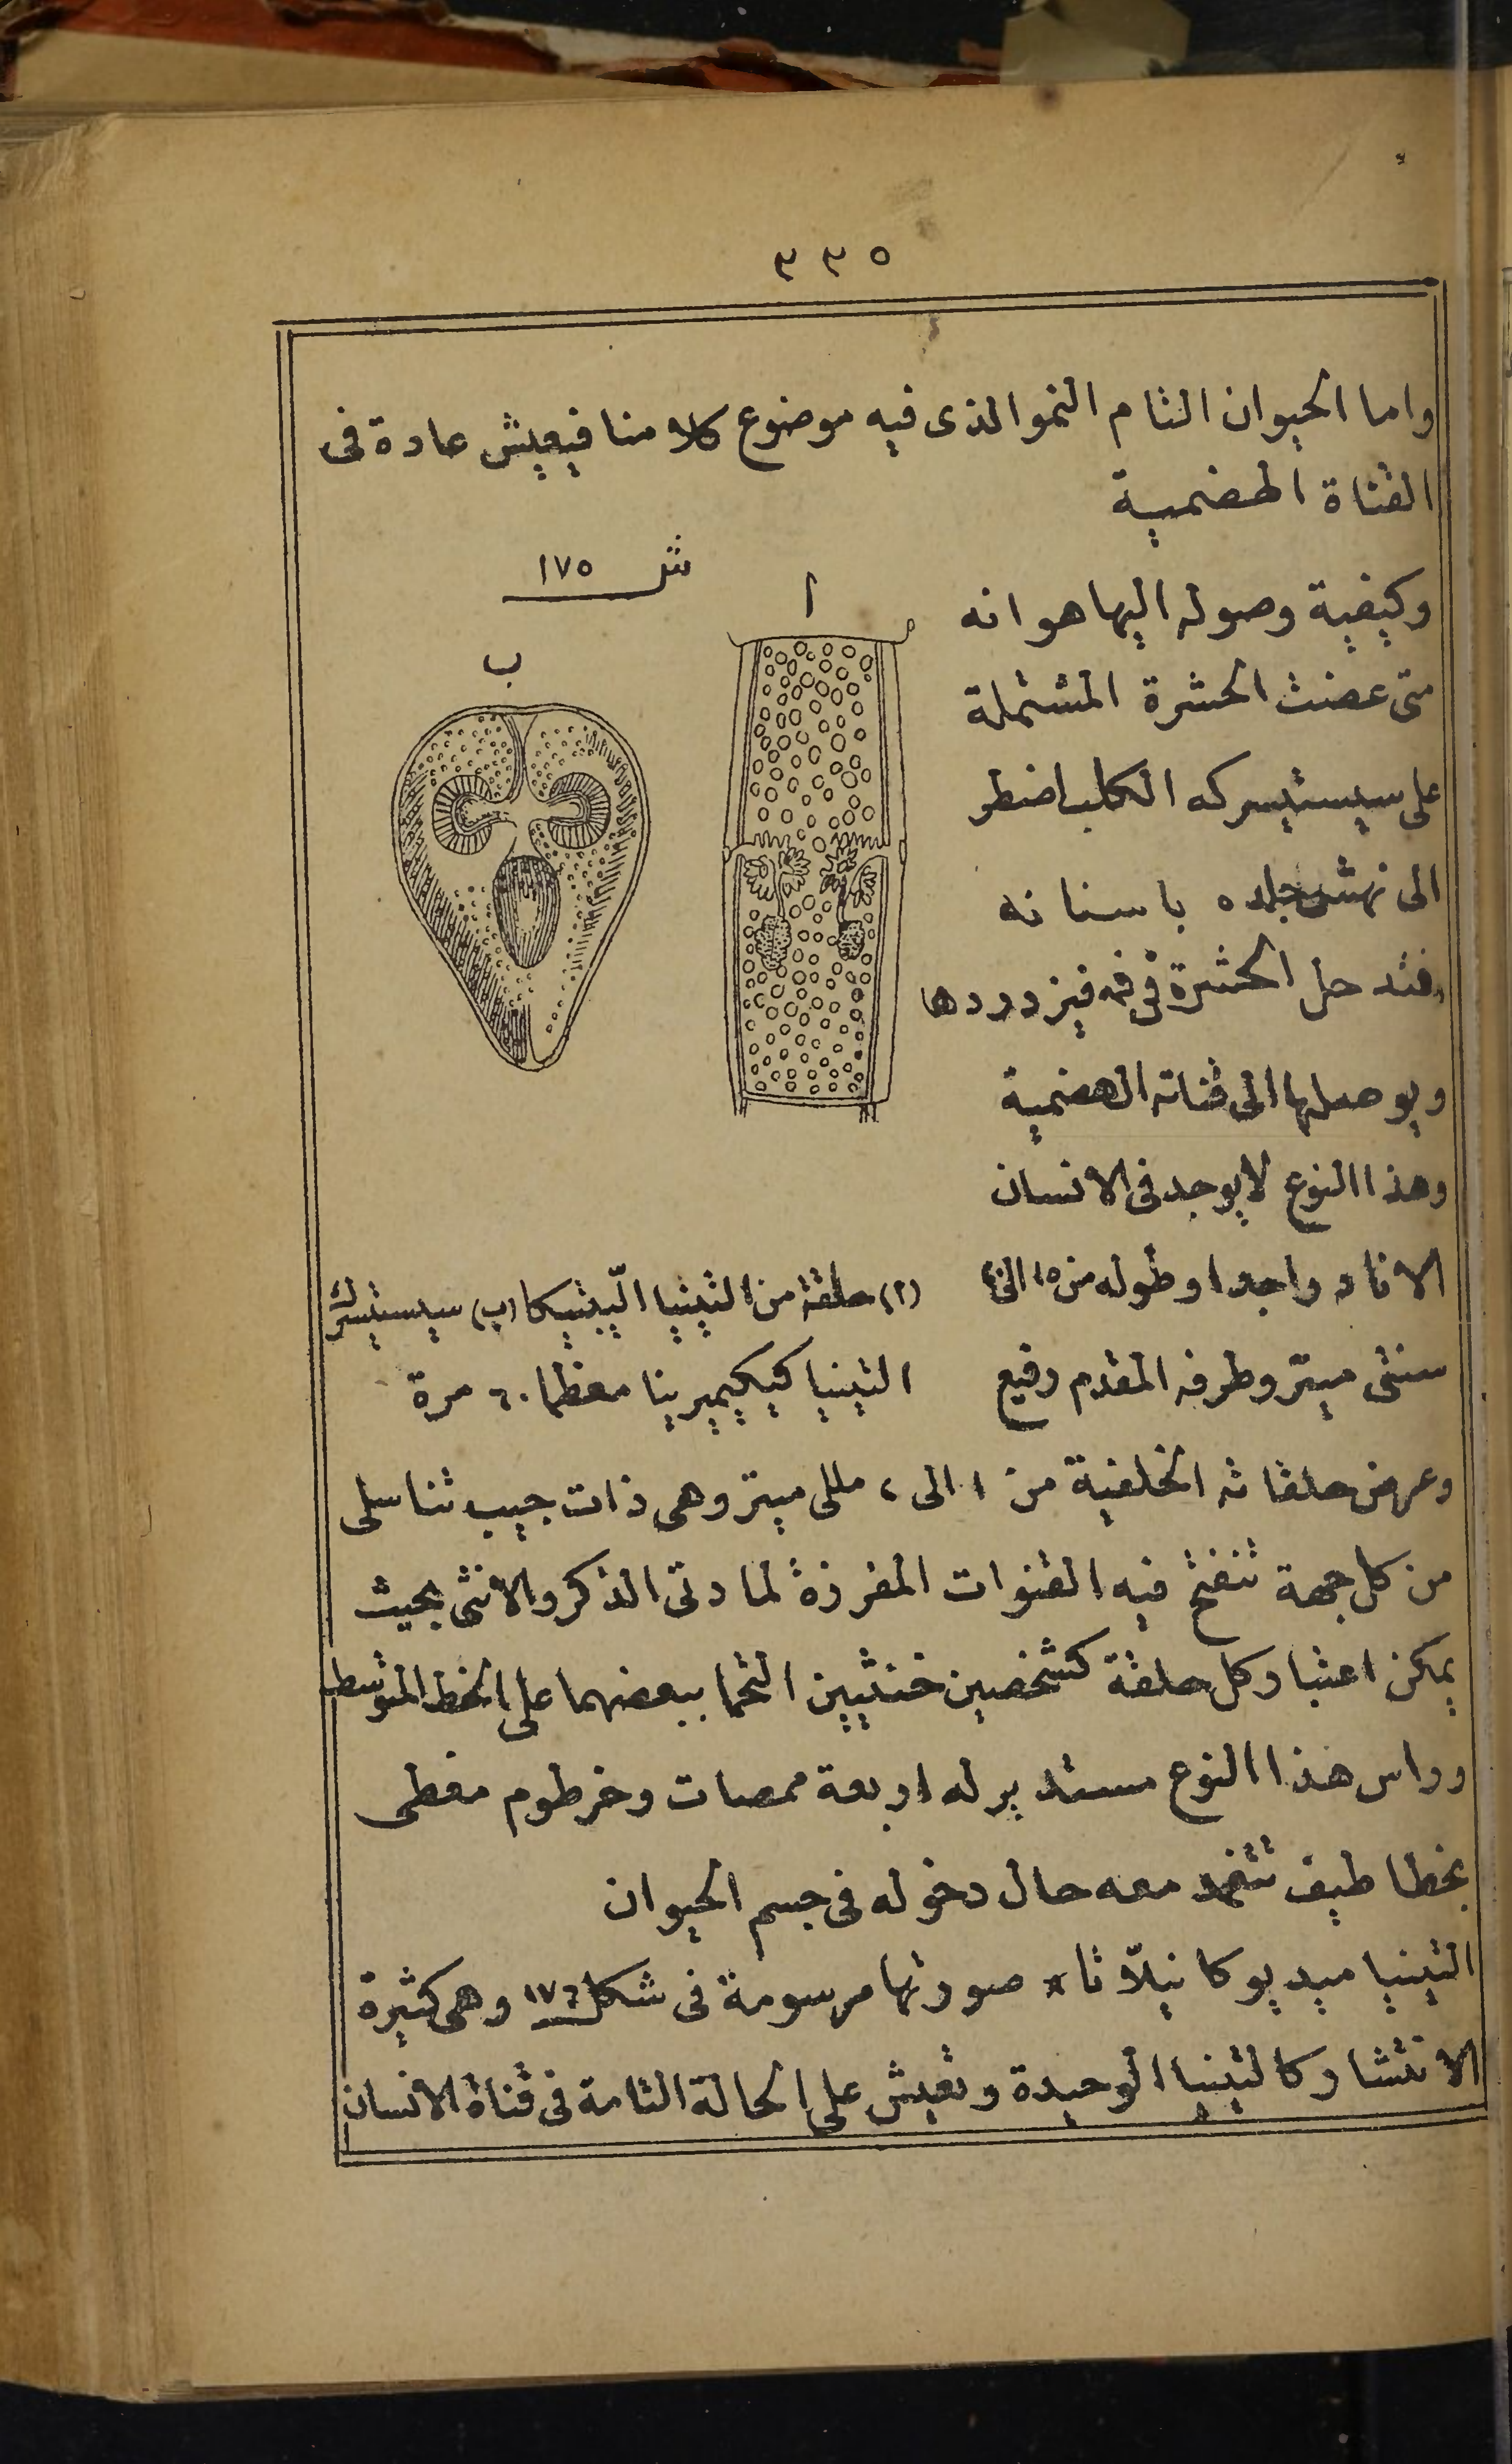 ٣٣٥
واما الحيوان التام النمو الذى فيه موضوع كلامنا فيعيش عادة فى
القناة الهضمية
شـ ١٧٥
ا
ب
وكيفية وصوله اليها هو انه
متى عضت الحشرة المشتملة
على سيستيسركه الكلب اضطر
الى نهش جلده باسنانه
فتدخل الحشرة فى فمه فيزدردها
ويوصلها الى قناته الهضمية
وهذا النوع لا يوجد فى الانسان
الا نادرا جدا وطوله من ١٥ الى
سنتى ميتر وطرفه المقدم رفيع
(ا) حلقة من التينيا الليپتيكا (ب) سيستيسرك
التينيا كيكيميرينا معظما ٦٠ مرة
وعرض حلقاته الخلفية من ١ الى ٢ مللى ميتر وهى ذات جيب تناسلى
من كل جهة تنفتح فيه القنوات المفرزة لمادتى الذكر والانثى بحيث
يمكن اعتبار كل حلقة كشخصين خنثيين التحما ببعضهما على الخط المتوسط
وراس هذا النوع مستدير له اربعة ممصات وخرطوم مغطى
بخطاطيف تنغمد معه حال دخوله فى جسم الحيوان
التينيا ميديوكانيلاتا * صورتها مرسومة فى شكل ١٧٦ وهى كثيرة
الانتشار كالتينيا الوحيدة وتعيش على الحالة التامة فى قناة الانسان